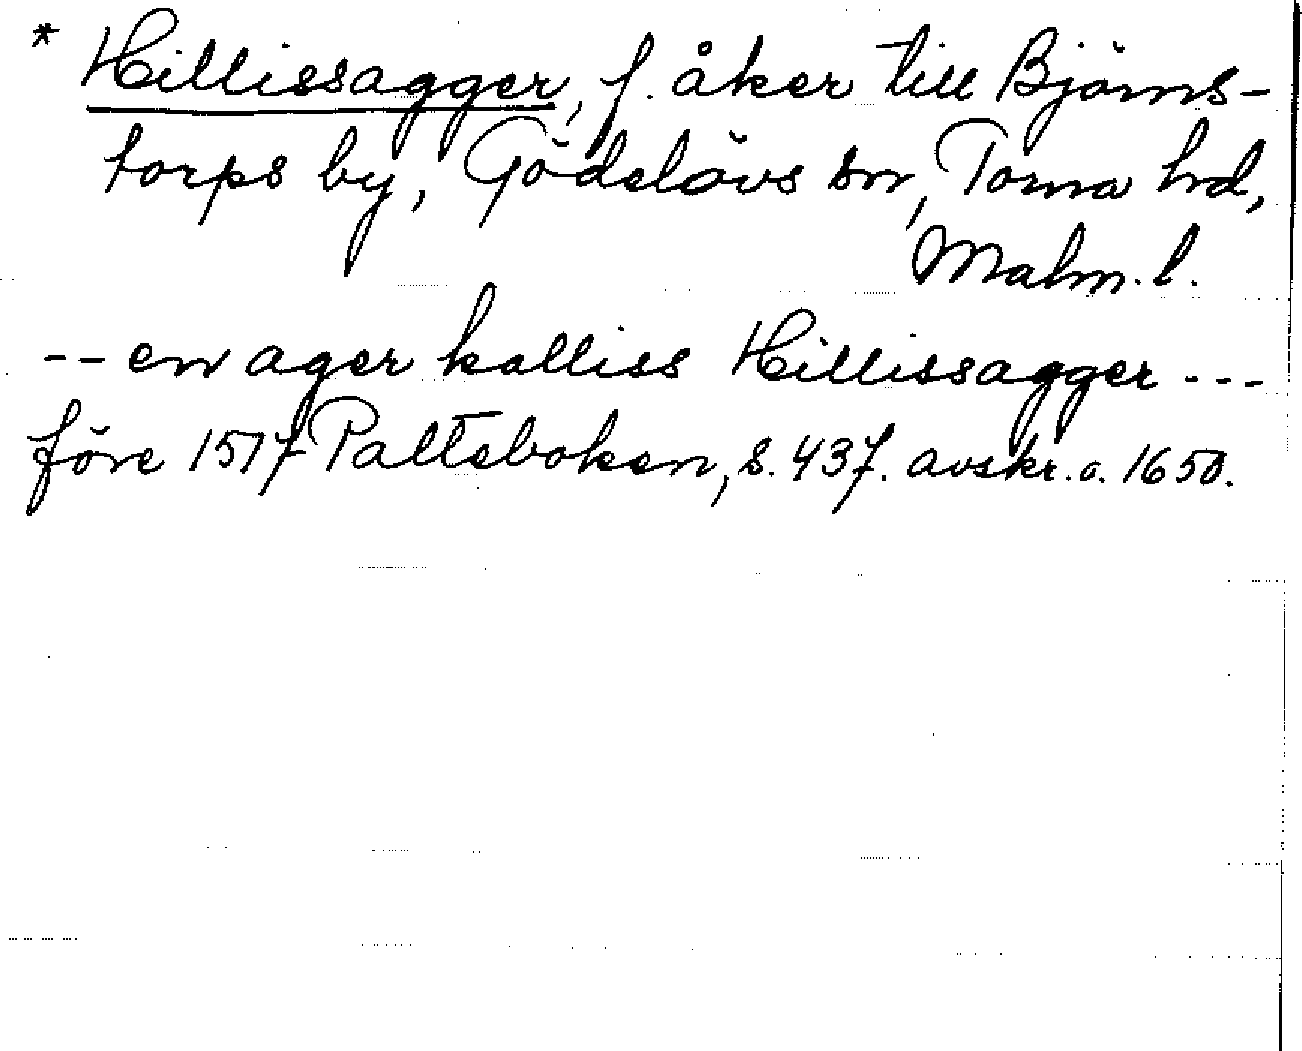 * Hillissagger, f. åker till Björns-
torps by, Gödelövs sn, Torna hd,
Malm. l.
-- en ager kalliss Hillissagger ---
före 1517 Palteboken, s. 437. avskr. o. 1650.